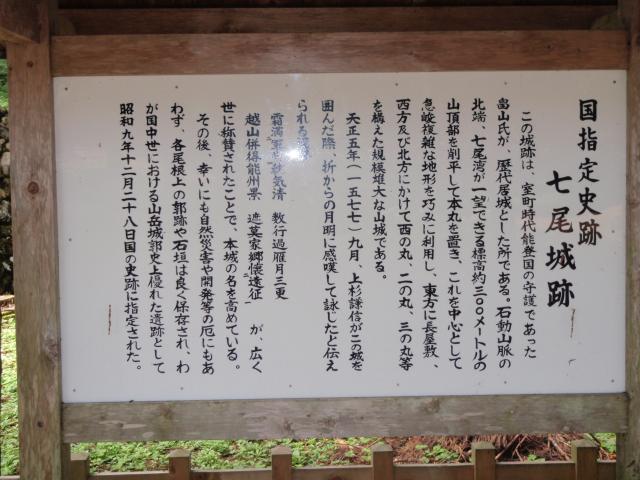 国指定史跡
七尾城跡
この城跡は、室町時代能登国の守護であった
畠山氏が、歴代居城とした所である。石動山脈の
北端、七尾湾が一望できる標高約三〇〇メートルの
山頂部を削平して本丸を置き、これを中心として
急峻複雑な地形を巧みに利用し、東方に長屋敷、
西方及び北方にかけて西の丸、二の丸、三の丸等
を構えた規模雄大な山城である。
天正五年(一五七七)九月、上杉謙信がこの城を
囲んだ際、折からの月明に感嘆して詠じたと伝え
られる
霜満軍 秋気清 数行過雁月三更
越山併得能州景 遮莫家郷懐遠征 が、広く
世に称賛されたことで、本城の名を高めている。
その後、幸いにも自然災害や開発等の厄にもあ
わず、各尾根上の郭跡や石垣は良く保存され、わ
が国中世における山岳城郭史上優れた遺跡として
昭和九年十二月二十八日国の史跡に指定された。